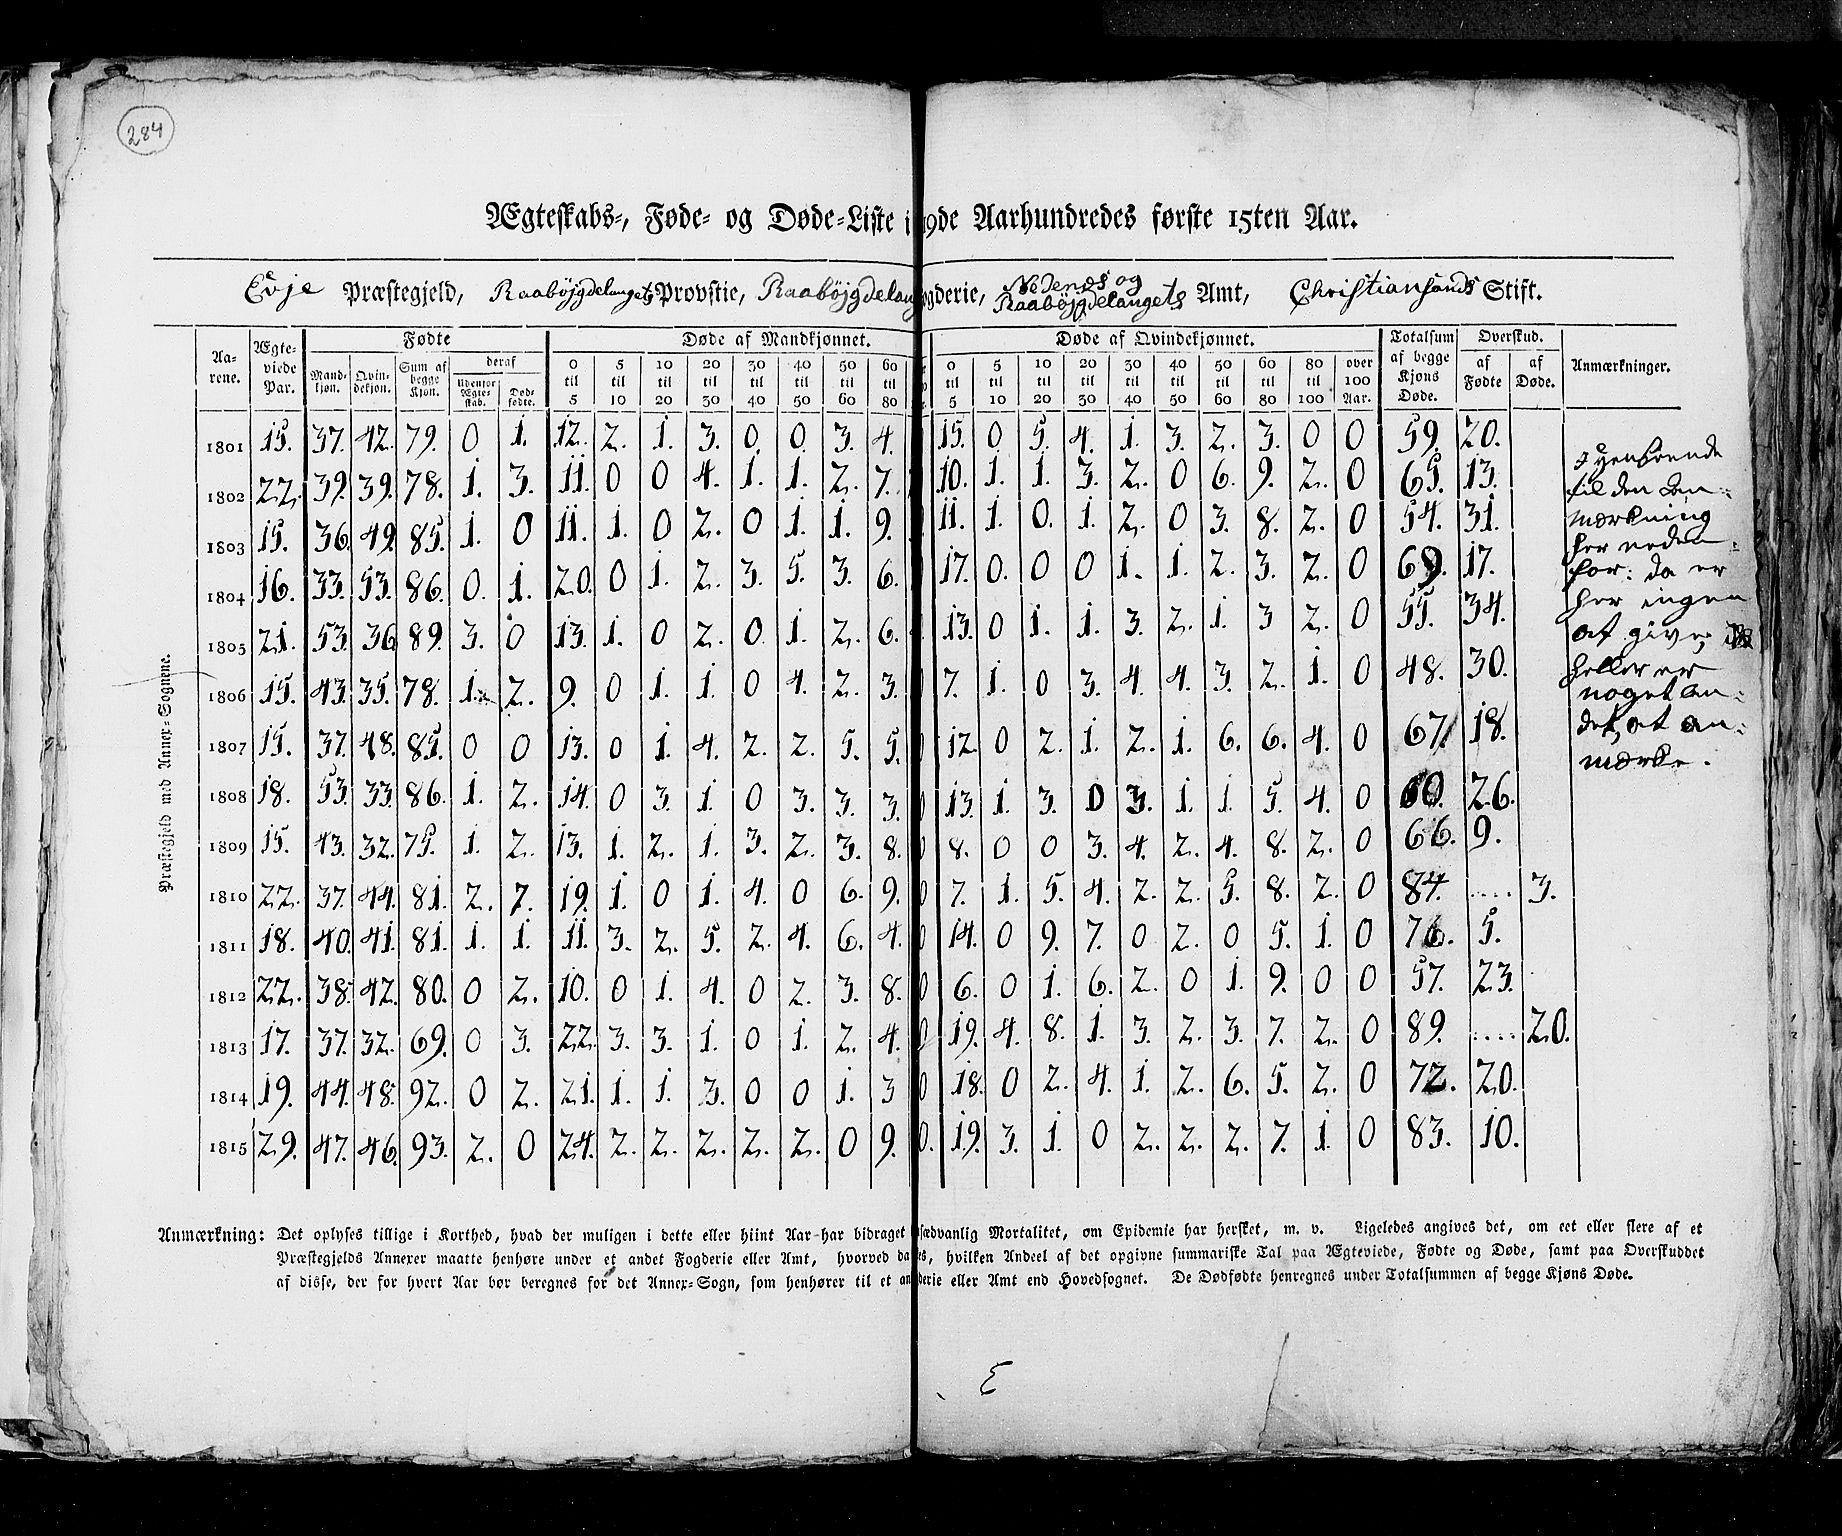 284
Ægteskabs-, Føde- og Døde-Liste i 19de Aarhundredes første 15ten Aar.
Evje Præstegjeld, Raabøjgdelaugets Provstie, Raabøjgdelaug ogderie, Nedenes og Raabøjgdelaugets Amt, Christiansands Stift.
Præstegjeld med Annex-Sognene.
Aarene. Ægteviede Par. Fødte Døde af Mandkjønnet. Døde af Qvindekjønnet. Totalsum af begge Kjøns Døde. Overskud. Anmærkninger.
Mandkjøn. Qvindekjøn. Sum af begge Kjøn. deraf Udenfor Ægteskab. Dødfødte. 0 til 5 5 til 10 10 til 20 20 til 30 30 til 40 40 til 50 50 til 60 60 til 80 0 til 5 5 til 10 10 til 20 20 til 30 30 til 40 40 til 50 50 til 60 60 til 80 80 til 100 over 100 Aar. af Fødte af Døde.
1801 15. 37. 42. 79. 0 1. 12. 2. 1. 3. 0. 0. 3. 4. 15. 0 5. 4. 1. 3. 2. 3. 0 0 59. 20.
1802 22. 39. 39. 78. 1. 3. 11. 0 0 4. 1. 1. 2. 7. 10. 1. 1. 3. 2. 0 6. 9. 2. 0 65. 13.
1803 15. 36. 49. 85. 1. 0 11. 1. 0 2. 0 1. 1. 9. 11. 1. 0. 1. 2. 0 3. 8. 2. 0 54. 31.
1804 16. 33. 53. 86. 0. 1. 20. 0 1. 2. 3. 5. 3. 6. 17. 0. 0 0 1. 1. 2. 3. 2. 0 69. 17.
1805 21. 53. 36 89. 3. 0 13. 1. 0 2. 0. 1. 2. 6. 13. 0 1. 1. 3. 2. 1. 3 2. 0 55. 34.
1806 15. 43. 35. 78. 1. 2. 9. 0 1. 1. 0 4. 2. 3. 7. 1. 0 3. 4. 4. 3. 2. 1. 0 48. 30.
1807 15. 37. 48. 85. 0 0 13. 0 1. 4. 2. 2. 5. 5. 0 12. 0 2. 1. 2. 1. 6. 6. 4. 0 67. 18.
1808 18. 53. 33. 86. 1. 2. 14. 0 3. 1. 0 3. 3. 3. 0 13. 1. 3. 0 3. 1. 1. 5. 4. 0 60. 26.
1809 15. 43. 32. 75. 1. 2. 13. 1. 2. 1. 3. 2. 3. 8. 0 8. 0 0 3. 4. 2. 4. 8. 2. 0 66. 9.
1810 22. 37. 44. 81. 2. 7. 19. 1. 0 1. 4. 0 6. 9. 0 7. 1. 5. 4. 2. 2. 5. 8. 2. 0 84. .... 3.
1811 18. 40. 41. 81. 1. 1. 11. 3. 2. 5. 2. 4. 6. 4. 0 14. 0 9. 7. 0 2. 0 5. 1. 0 76. 5.
1812 22. 38. 42. 80. 0 2. 10. 0 1. 4. 0 2. 3. 8. 0 6. 0 1. 6. 2. 0 1. 9. 0 0 57. 23.
1813 17. 37. 32. 69. 0 3. 22. 3. 3. 1. 0 1. 2. 4. 0 19. 4. 8. 1. 3. 2. 3. 7. 2. 0 89. .... 20.
1814 19. 44. 48. 92. 0 2. 21. 1. 1. 3. 0 0 1. 3 0 18. 0 2. 4. 1. 2. 6. 5. 2. 0 72. 20.
1815 29. 47. 46. 93. 2. 0 24. 2. 2. 2. 2. 2. 0 9. 0. 19. 3. 1. 0 2. 2. 2. 7. 1. 0 83. 10.
til den An-
mærkning
her neden-
for: da er
her ingen
at give,
heller er
noget an-
det, at an-
mærke.
Anmærkning: Det oplyses tillige i Korthed, hvad der muligen i dette eller hiint Aar har bidraget sædvanlig Mortalitet, om Epidemie har hersket, m. v. Ligeledes angives det, om eet eller flere af et
Præstegjelds Annexer maatte henhøre under et andet Fogderie eller Amt, hvorved da es, hvilken Andeel af det opgivne summariske Tal paa Ægteviede, Fødte og Døde, samt paa Overskuddet
af disse, der for hvert Aar bør beregnes for det Annex-Sogn, som henhører til et an derie eller Amt end Hovedsognet. De Dødfødte henregnes under Totalsummen af begge Kjøns Døde.